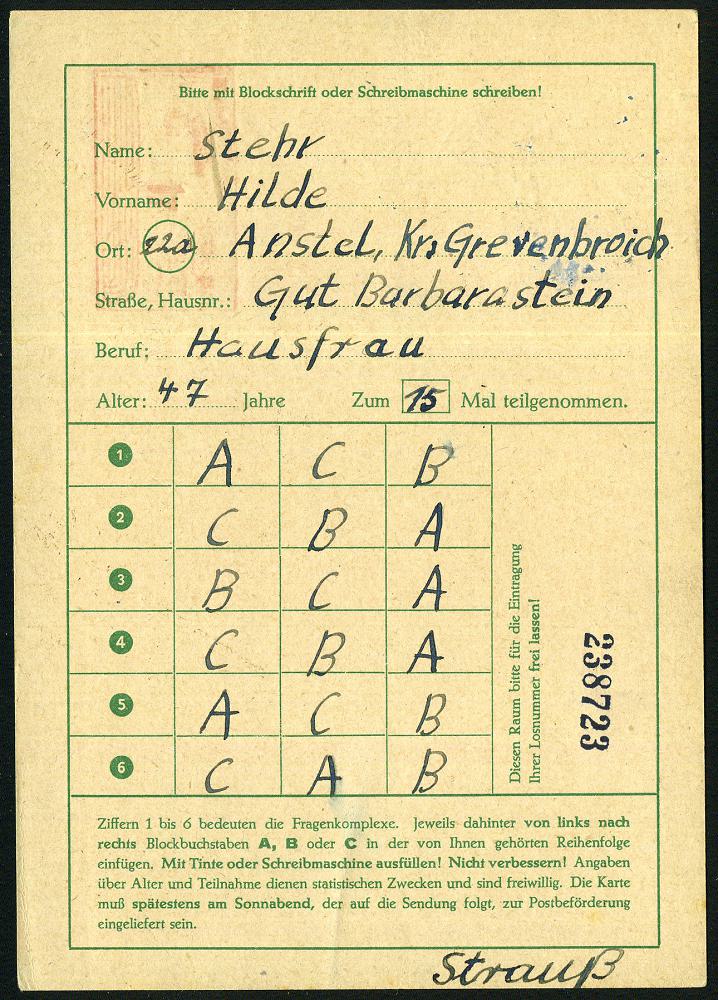 Bitte mit Blockschrift oder Schreibmaschine schreiben!
Name: Stehr
Vorname: Hilde
Ort: 22a Anstel, Kr. Grevenbroich
Straße, Hausnr.: Gut Barbarastein
Beruf: Hausfrau
Alter: 47 Jahre Zum 15 Mal teilgenommen.
1 A C B
2 C B A
3 B C A
4 C B A
5 A C B
6 C A B
Diesen Raum bitte für die Eintragung
Ihrer Losnummer frei lassen!
238723
Ziffern 1 bis 6 bedeuten die Fragenkomplexe. Jeweils dahinter von links nach
rechts Blockbuchstaben A, B oder C in der von Ihnen gehörten Reihenfolge
einfügen. Mit Tinte oder Schreibmaschine ausfüllen! Nicht verbessern! Angaben
über Alter und Teilnahme dienen statistischen Zwecken und sind freiwillig. Die Karte
muß spätestens am Sonnabend, der auf die Sendung folgt, zur Postbeförderung
eingeliefert sein.
Strauß